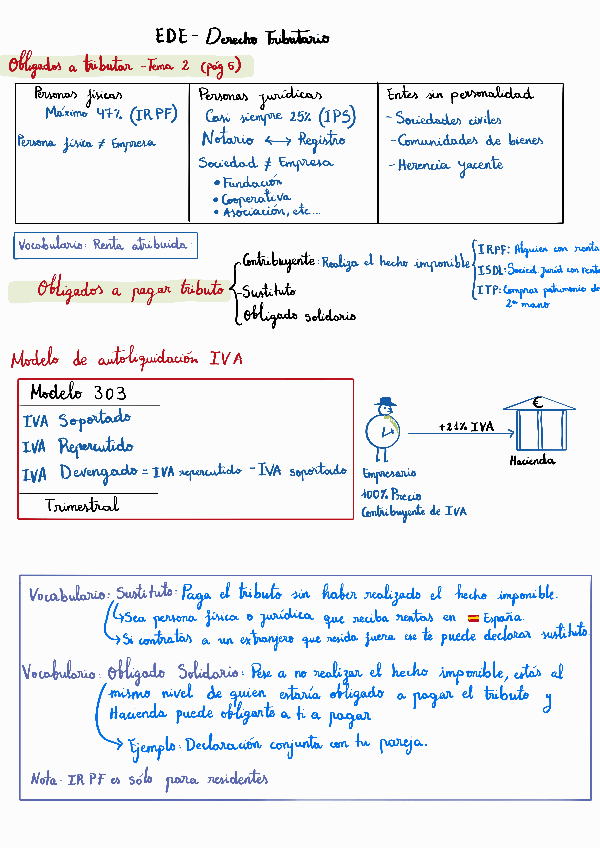 EDE - Derecho Tributario
Obligados a tributar - Tema 2 (pág 6)
Personas físicas
Máximo 47% (IRPF)
Persona física ≠ Empresa
Personas jurídicas
Casi siempre 25% (IPS)
Notario ↔ Registro
Sociedad ≠ Empresa
• Fundación
• Cooperativa
• Asociación, etc...
Entes sin personalidad
- Sociedades civiles
- Comunidades de bienes
- Herencia yacente
Vocabulario: Renta atribuida:
Obligados a pagar tributo
Contribuyente: Realiza el hecho imponible
IRPF: Alguien con renta
ISDL: Socied. Jurid con renta
ITP: Comprar patrimonio de
2ª mano
- Sustituto
Obligado solidario
Modelo de autoliquidación IVA
Modelo 303
IVA Soportado
IVA Repercutido
IVA Devengado = IVA repercutido - IVA soportado
Trimestral
Empresario
100% Precio
Contribuyente de IVA
+21% IVA
€
Hacienda
Vocabulario: Sustituto: Paga el tributo sin haber realizado el hecho imponible.
↳ Sea persona física o jurídica que reciba rentas en 🇪🇸 España.
↳ Si contratas a un extranjero que resida fuera ese te puede declarar sustituto.
Vocabulario: Obligado Solidario: Pese a no realizar el hecho imponible, estás al
mismo nivel de quien estaría obligado a pagar el tributo y
Hacienda puede obligarte a ti a pagar
Ejemplo: Declaración conjunta con tu pareja.
Nota: IRPF es sólo para residentes